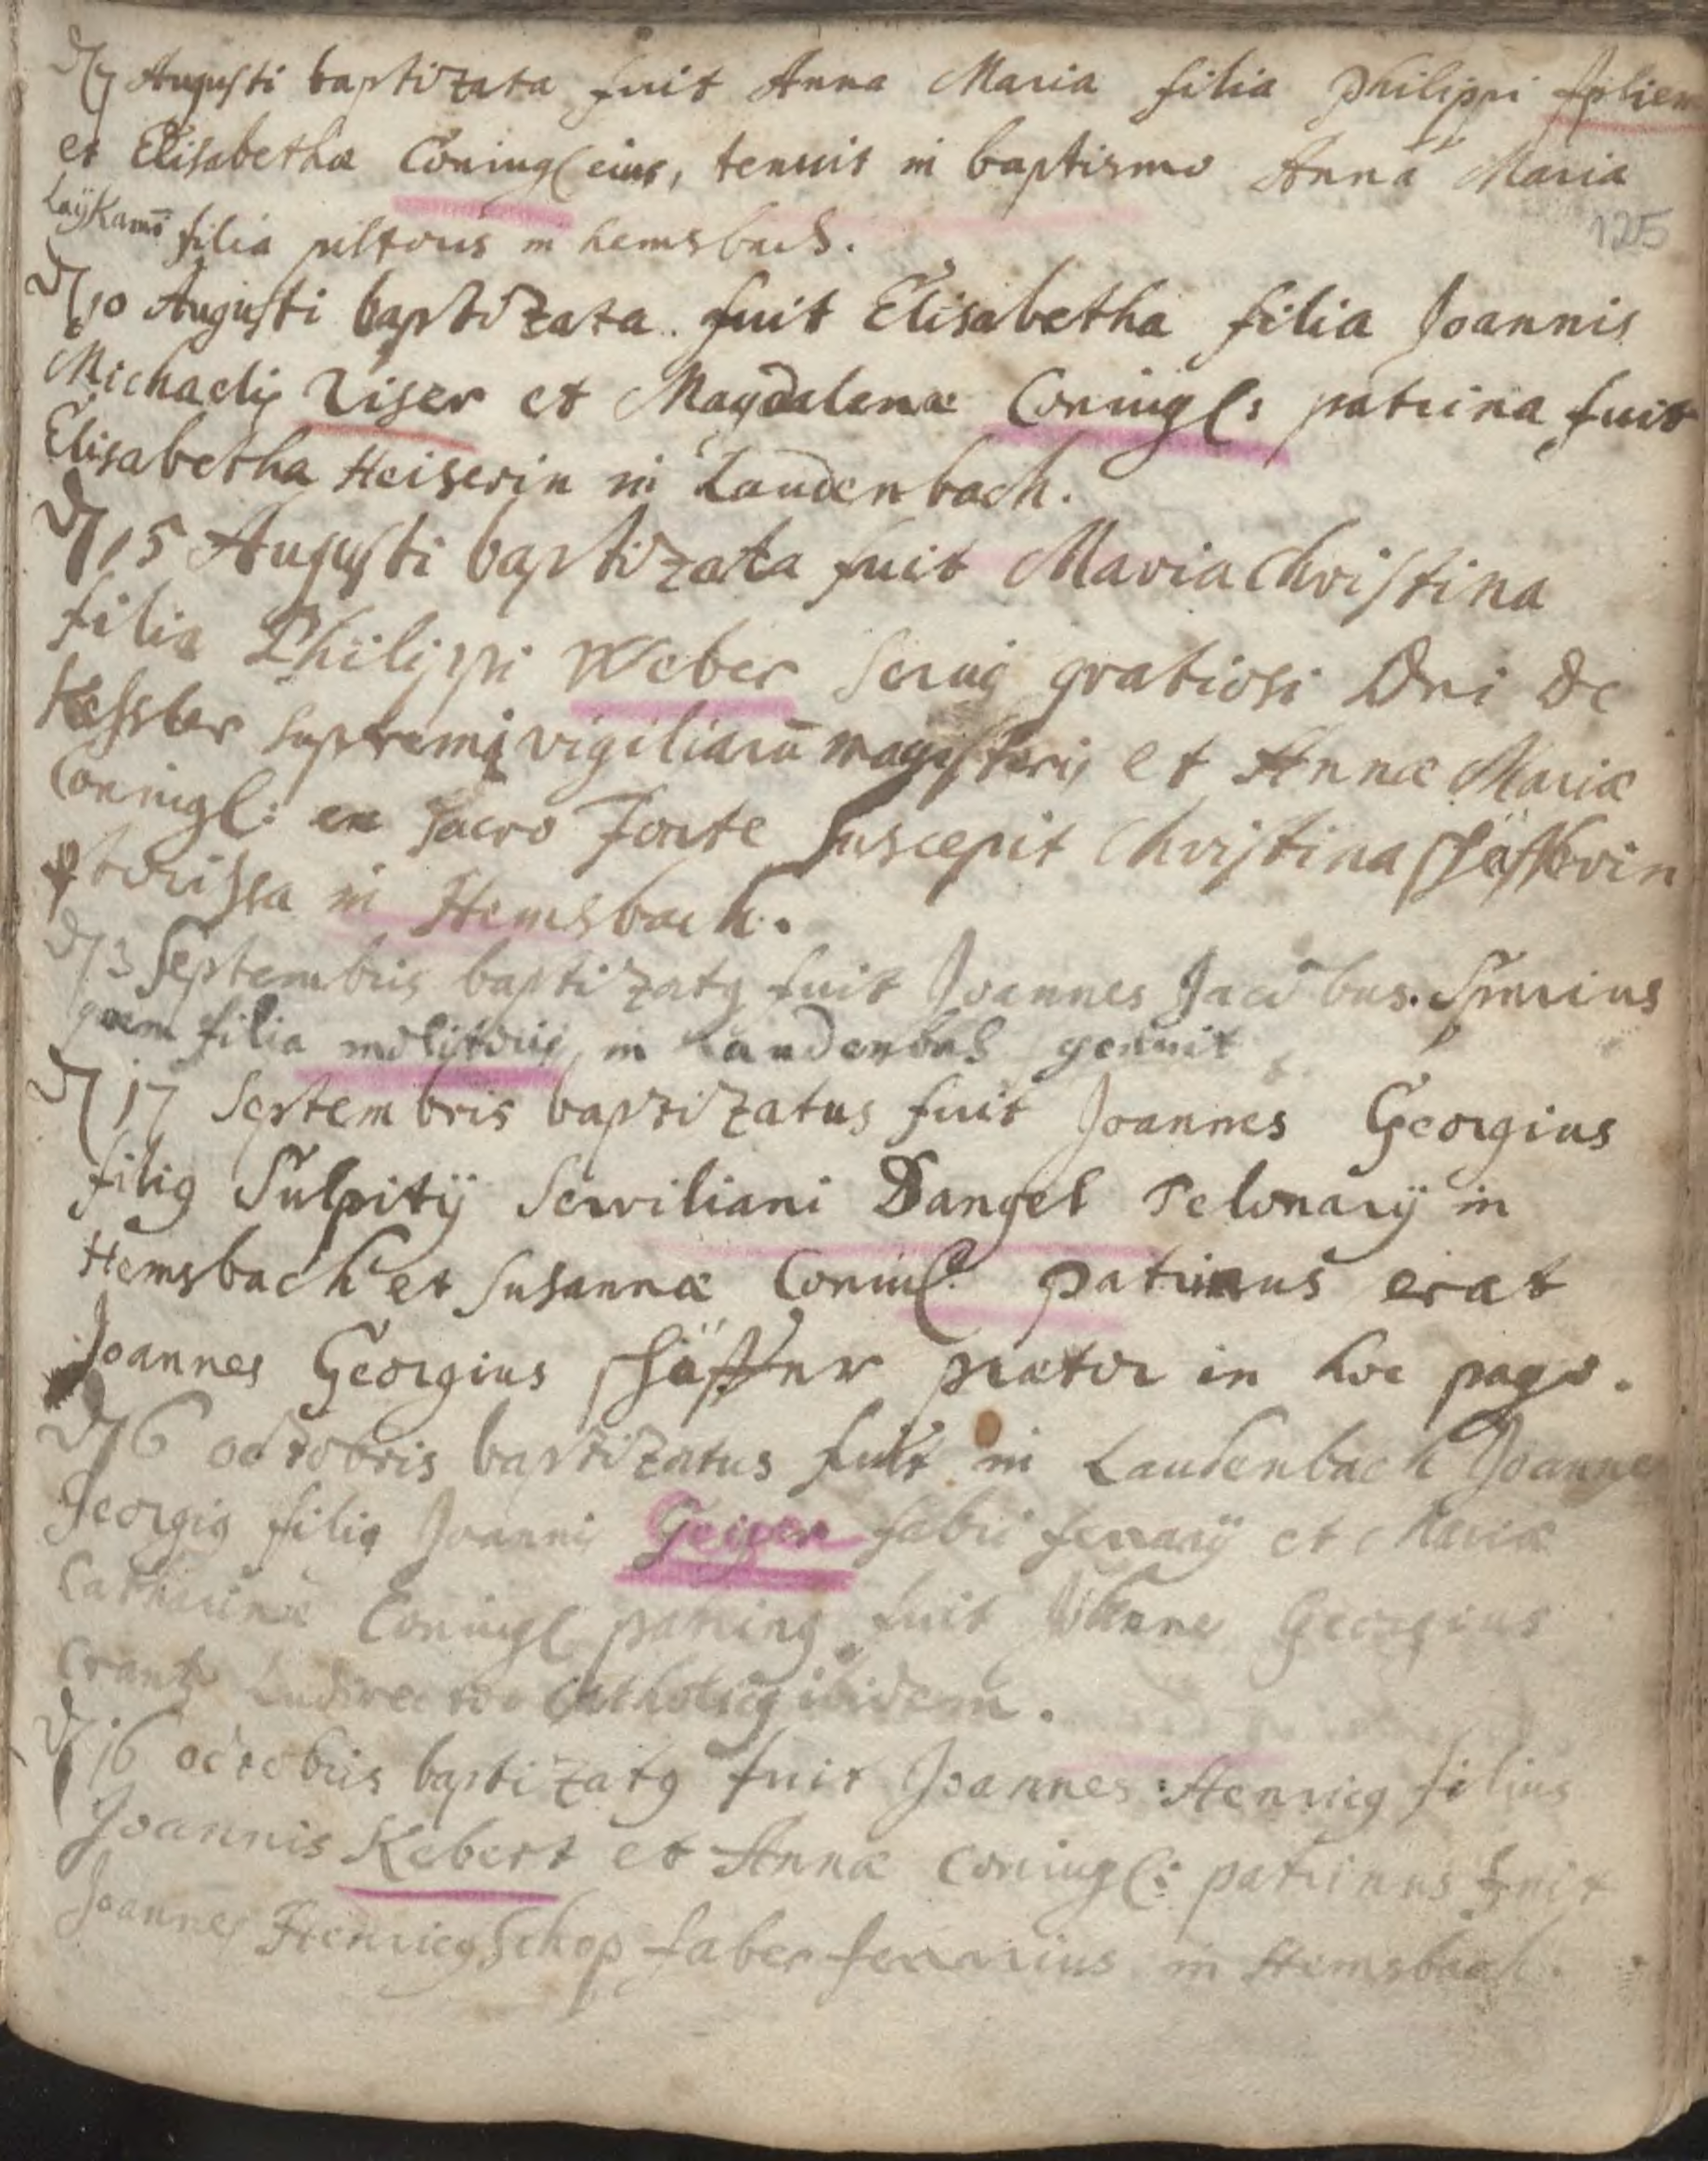 7 Augusti baptizata fuit Anna Maria filia Philippi
et Elisabethæ Coniugis eius, tenuit in baptismo Anna Maria
filia pistoris in hemsbach.
125
10 Augusti baptizata fuit Elisabetha filia Joannis
Michaelis Ziser et Magdalenæ Coniugis: patrina fuit
Elisabetha Heiserin in Laudenbach.
15 Augusti baptizata fuit Maria Christina
filia Philippi Weber servi gratiosi Dni de
Kessler supremi vigiliarū magistri, et Annæ Mariæ
Coniugis: ex sacro Fonte suscepit Christina schäfferin
prætorissa in Hemsbach.
3 Septembris baptizatus fuit Joannes Jacobus. Spurius
quem filia molitoris in Laudenbach genuit
17 Septembris baptizatus fuit Joannes Georgius
filius Sulpitÿ Serviliani Dangel Telonarÿ in
Hemsbach et Susannæ Coniug: patrinus erat
Joannes Georgius schäffner prætor in hoc pago.
6 octobris baptizatus fuit in Laudenbach Joannes
Georgius filius Joannis Geiger fabri ferrarÿ et Mariæ
Catharinæ Coniugis patrinus fuit Georgius
Crantz Ludirector Catholicus ibidem.
16 octobris baptizatus fuit Joannes Henricus filius
Joannis Kebert et Annæ Coniugis: patrinus fuit
Joannes Henricus Schop faber ferrarius in Hemsbach.